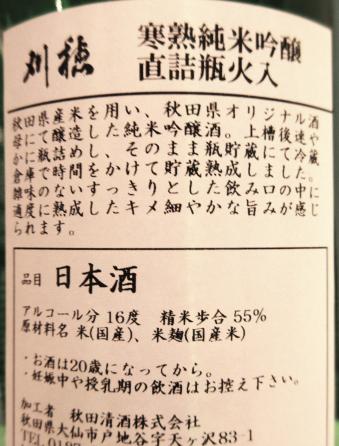 刈穂
寒熟純米吟醸
直詰瓶火入
秋田県産米を用い、秋田県オリジナル酒
母にて醸造した純米吟醸酒。上槽後速や
かに瓶詰めし、そのまま瓶貯蔵にて冷蔵
倉庫で時間をかけて貯蔵熟成しました。
雑味のないすっきりとした飲み口の中に
適度に熟成したキメ細やかな旨みが感じ
られます。
品目 日本酒
アルコール分 16度 精米歩合 55%
原材料名 米(国産)、米麹(国産米)
・お酒は20歳になってから。
・妊娠中や授乳期の飲酒はお控え下さい。
加工者 秋田清酒株式会社
秋田県大仙市戸地谷字天ヶ沢83-1